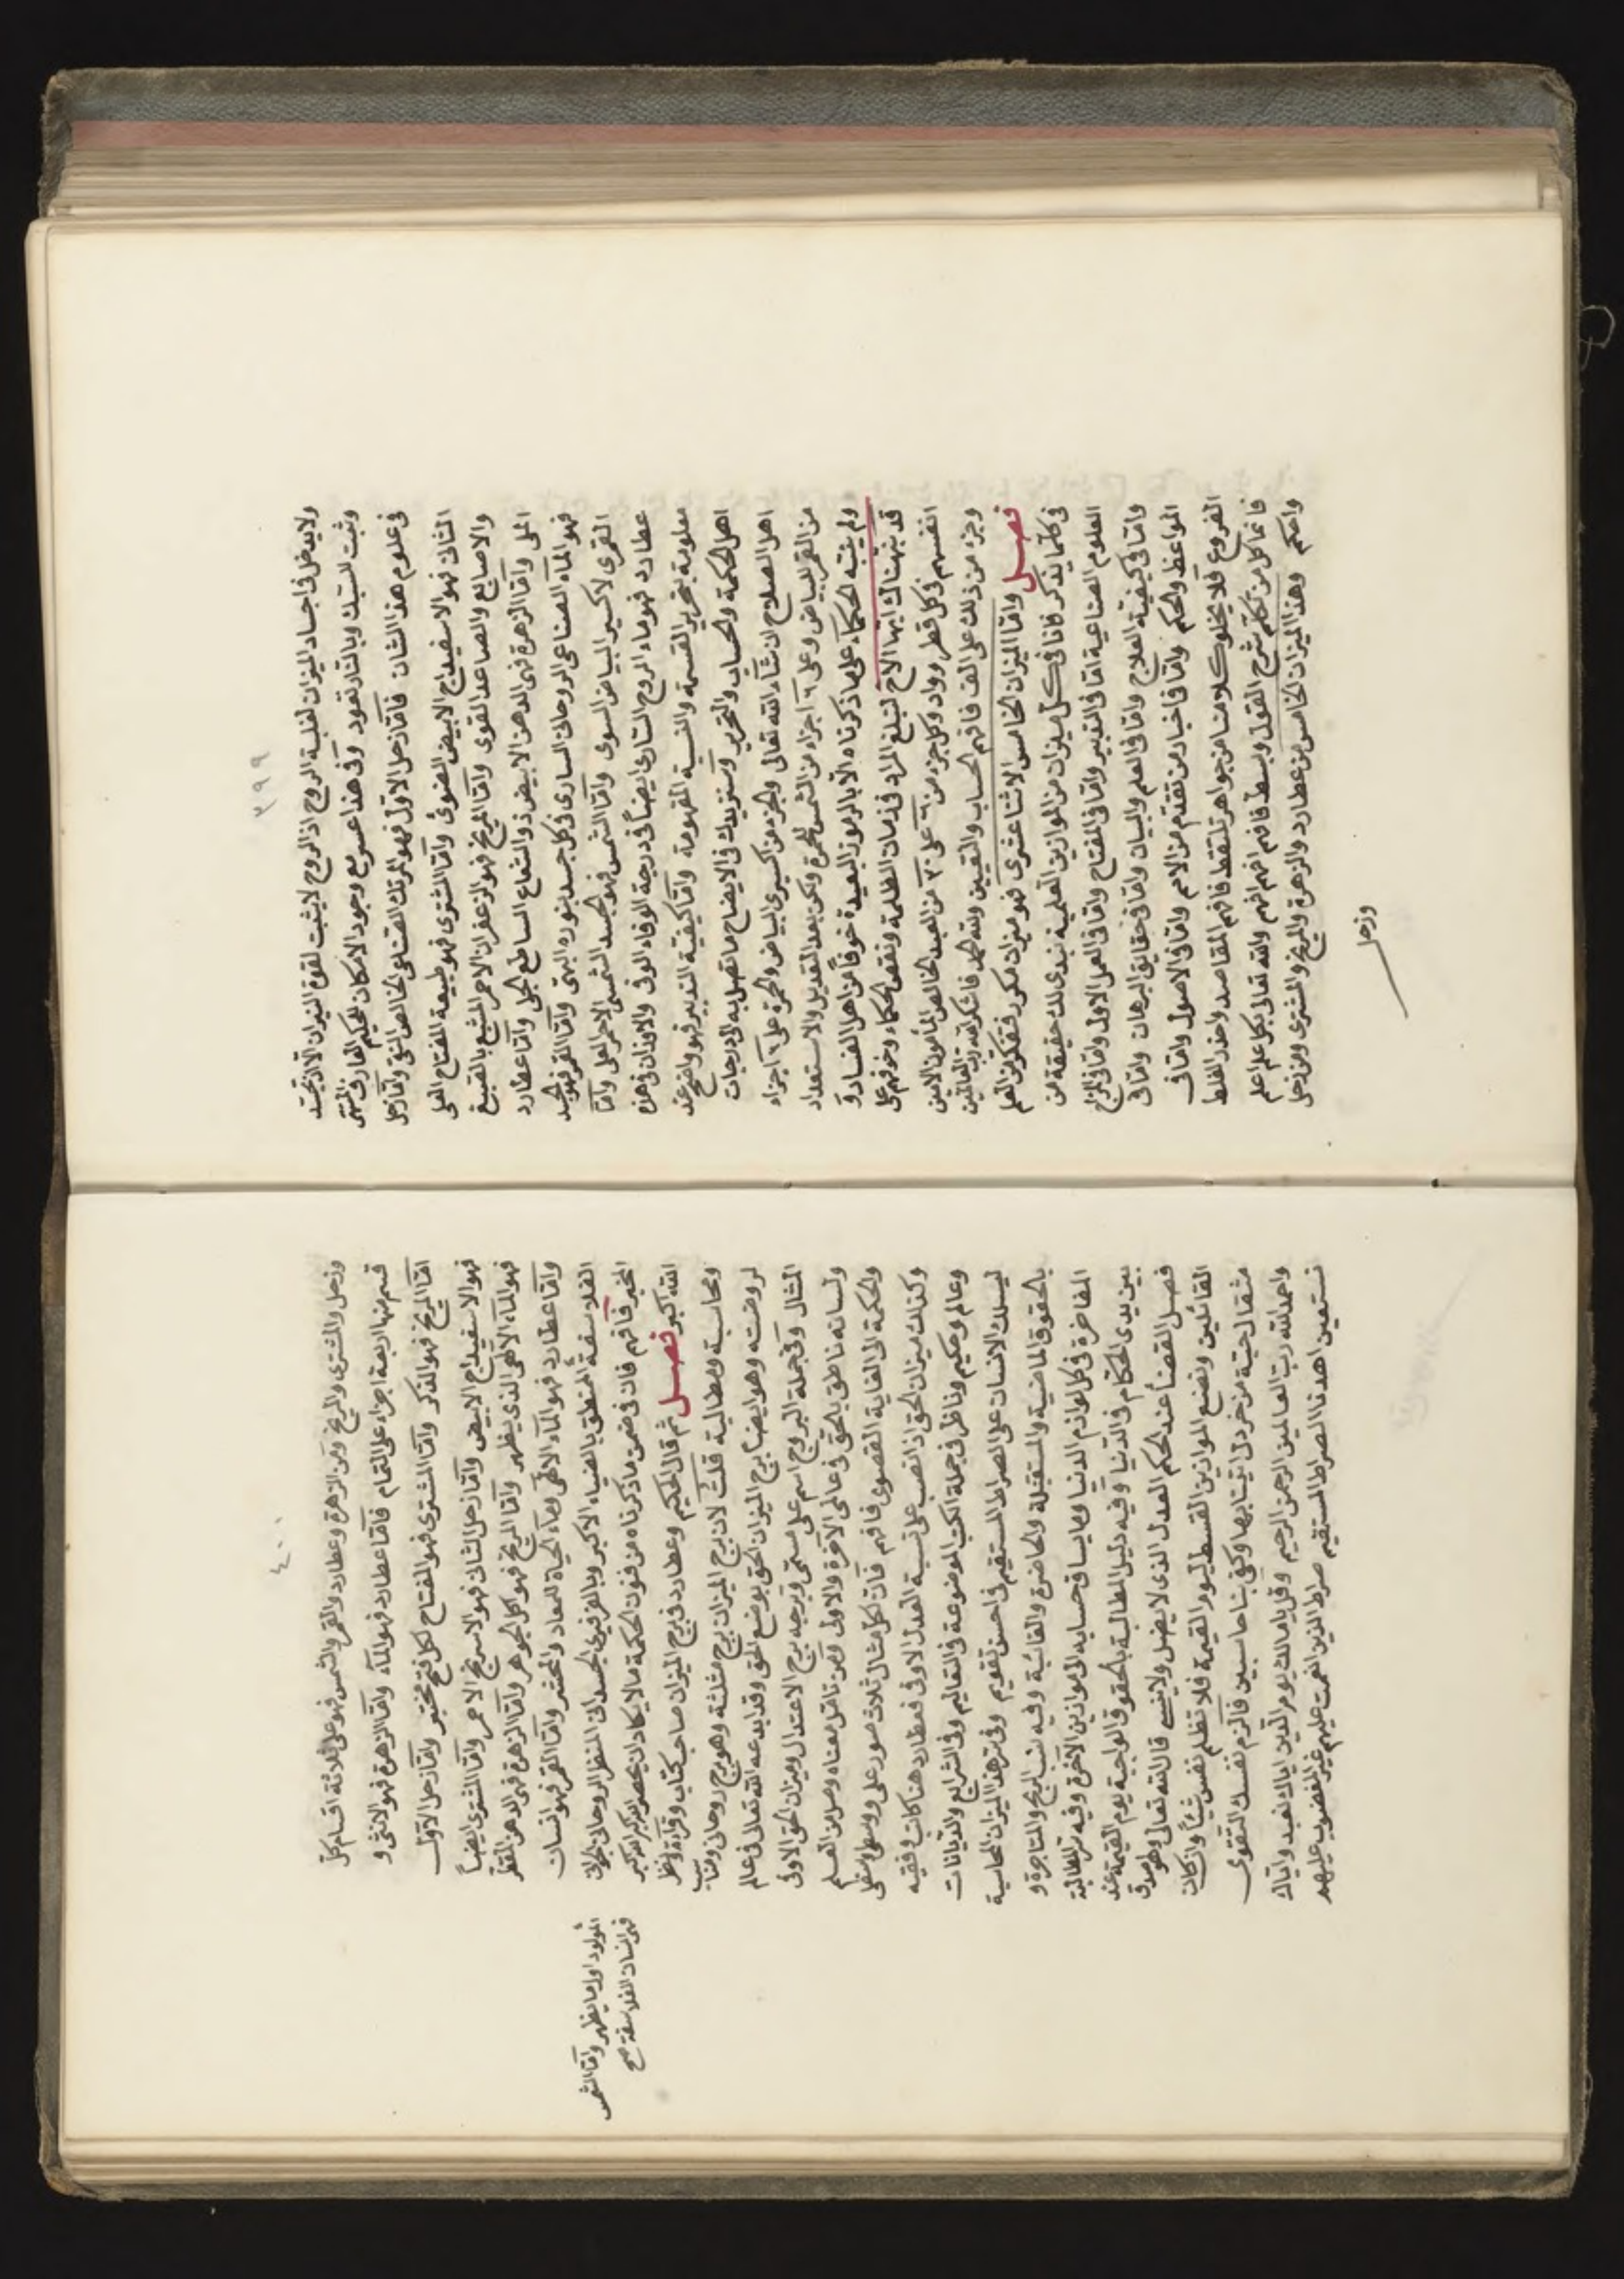 ٣٩٩
ولا يدخل في اجساد الميزان لغلبة الروح اذ الروح لا يثبت لقوة النيران الا بجسد
وثبت للسبك وبالنار تعود وفي هذا عسر مع وجود الامكان للحكيم العارف المستمر
في علوم هذا الشان فاما زحل الاول فهو المرتك الصناعي الخالص النقي واما زحل
الثاني فهو الاسفيداج الابيض الضوئي واما المشتري فهو طبيعة المفتاح الفعلي
والاصابع والصاعد القوى واما المريخ فهو الزعفران الاحمر المشبع بالصبغ
الملي واما الزهرة فهي الدهن الابيض ذو الشعاع الساطع الجلي واما عطارد
فهو الماء الصناعي الروحاني الساري في كل جسد بنوره البهي واما القمر فهو الجسد
القمري لاكسير البياض السوى واما الشمس فهو الجسد الشمسي الاحمر العلي واما
عطارد فهو ماء الروح الساري ايضاً في درجة الوفاء الوفي والاوزان في هذه
معلومة بتحرير القسمة والنسبة المفهومة واما كيفية التدبير فهو واضح عند
اهل الحكمة والحساب والتحرير وسنزيدك في الايضاح ما تصل به الى درجات
اهل الصلاح ان شاء الله تعالى والجزء من اكسيري البياض والحمرة على ٦ اجزاء
من القمر للبياض وعلى ٦ اجزاء من الشمس للحمرة ولكن بعد التعديل والاستعداد
ولم ينبه الحكماء على ما ذكرناه الا بالرموز البعيدة خوفاً من اهل الفساد و
قد نبهناك ايها الاخ لتبلغ المراد في زمان الظلمة ونقص الحكماء وخوفهم على
انفسهم في كل قطر وواد وكل جزء من ٦ على ٣٠ من العبد الخالص المأمون الامين
وجزء من ذلك على الف فافهم الحساب واليقين ولله الحمد فاشكر الله رب العالمين
فصل واما الميزان الخامس الاثنا عشري فهو ميزان مكرر فتفكر من العلم
في كلما نذكر فانا في كل ميزان من الموازين العلمية نبدى لك حقيقة من
العلوم الصناعية اما في التدبير واما في المفتاح واما في العمل الاول واما في المزاج
واما في كيفية العلاج واما في العلم والبيان واما في حقايق البرهان واما في
المواعظ والحكم واما في اخبار من تقدم من الامم واما في الاصول واما في
الفروع فلا يخلو كلامنا من جواهر تلتقط فافهم المقاصد واحذر الغلط
فانما كل من تكلم شرح القول وبسط فافهم افهم افهم والله تعالى بكل علم اعلم
واحكم وهذا الميزان الخامس من عطارد والزهرة والمريخ والمشتري ومن زحل
وزحل
٤٠٠
وزحل والمشتري والمريخ ومن الزهرة وعطارد والقمر والشمس فهو على ثلاثة اقسام كل
قسم منها اربعة اجزاء على التمام فاما عطارد فهو الماء واما الزهرة فهو الانثى و
اما المريخ فهو الذكر واما المشتري فهو المفتاح لكل فتح مختبر واما زحل الاول
فهو الاسفيداج الابيض واما زحل الثاني فهو الاسرنج الاحمر واما المشتري ايضاً
فهو الماء الالهي الذي يظهر واما المريخ فهو كل الجوهر واما الزهرة فهي الدهن المقطر
واما عطارد فهو الماء الالهي وماء الحياة للمعاد والمحشر واما القمر فهو انسان
الفلاسفة المنطق بالضياء الاكبر وبالقرفيري الجسداني المنظر الروحاني الجولاني
المخبر فافهم فان في ضمن ما ذكرناه من فنون الحكمة ما لا يكاد ان يحصر الله اكبر الله اكبر
المولود اول ما يظهر واما الشمس
فهي انسان الفلاسفة صح
الله اكبر فصل ثم قال الحكيم وعطارد في برج الميزان صاحب كتاب وقراءة ونظر
ومحاسبة ومطالبة قلت لان برج الميزان برج مثلثة وهو برج روحاني ومناسب
لروضته وهو ايضاً برج الميزان الحق بوضع الحق وقد ابدعه الله تعالى في عالم
المثال وفي جملة البروج اسم على مسمى وبرجه برج الاعتدال وميزان الحق الاوفى
ولسانه ناطق بالحق في عالمي الآخرة والاولى ومن تأمل معناه وصل من العلم
والحكمة الى الغاية القصوى فافهم فان لكل مثال ثلاث صور على ووسطى وسفلى
وكذلك ميزان الحق اذا نصب على نسبة العدل الاوفى فعطارد هنا كاتب وفقيه
وعالم وحكيم وناظر في جملة الكتب الموضوعة في التعاليم وفي الشرايع والديانات
ليسلك الانسان على الصراط المستقيم في احسن تقويم وفي سر هذا الميزان المحاسبة
بالحقوق الماضية والمستقبلة والحاضرة والغائبة وفيه نسب الربح والمتاجرة و
المفاخرة في كل لوازم الدنيا وما يساق حسابه الى موازين الآخرة وفيه سر المطالبة
بين يدي الحكام في الدنيا وفيه دليل المطالبة بالحقوق الواجبة يوم القيمة عند
فصل القضاء عند الحكم العدل الذي لا يضل ولا ينسى قال الله تعالى وهو اصدق
القائلين ونضع الموازين القسط ليوم القيمة فلا تظلم نفس شيئاً وان كان
مثقال حبة من خردل اتينا بها وكفى بنا حاسبين فالزم نفسك التقوى
واحمد الله رب العالمين الرحمن الرحيم وقل يا مالك يوم الدين اياك نعبد واياك
نستعين اهدنا الصراط المستقيم صراط الذين انعمت عليهم غير المغضوب عليهم